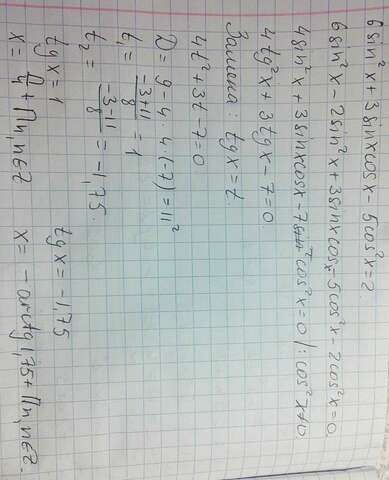 6sin²x + 3sinxcosx - 5cos²x = 2
6sin²x - 2sin²x + 3sinxcosx - 5cos²x - 2cos²x = 0
4sin²x + 3sinxcosx - 7cos²x = 0 | : cos²x ≠ 0
4tg²x + 3tgx - 7 = 0
Замена: tgx = t.
4t² + 3t - 7 = 0
D = 9 - 4 · 4 · (-7) = 11²
t₁ = (-3+11)/8 = 1
t₂ = (-3-11)/8 = -1,75.
tgx = 1 tgx = -1,75
x = П/4 + Пn, n∈Z x = -arctg1,75 + Пn, n∈Z.